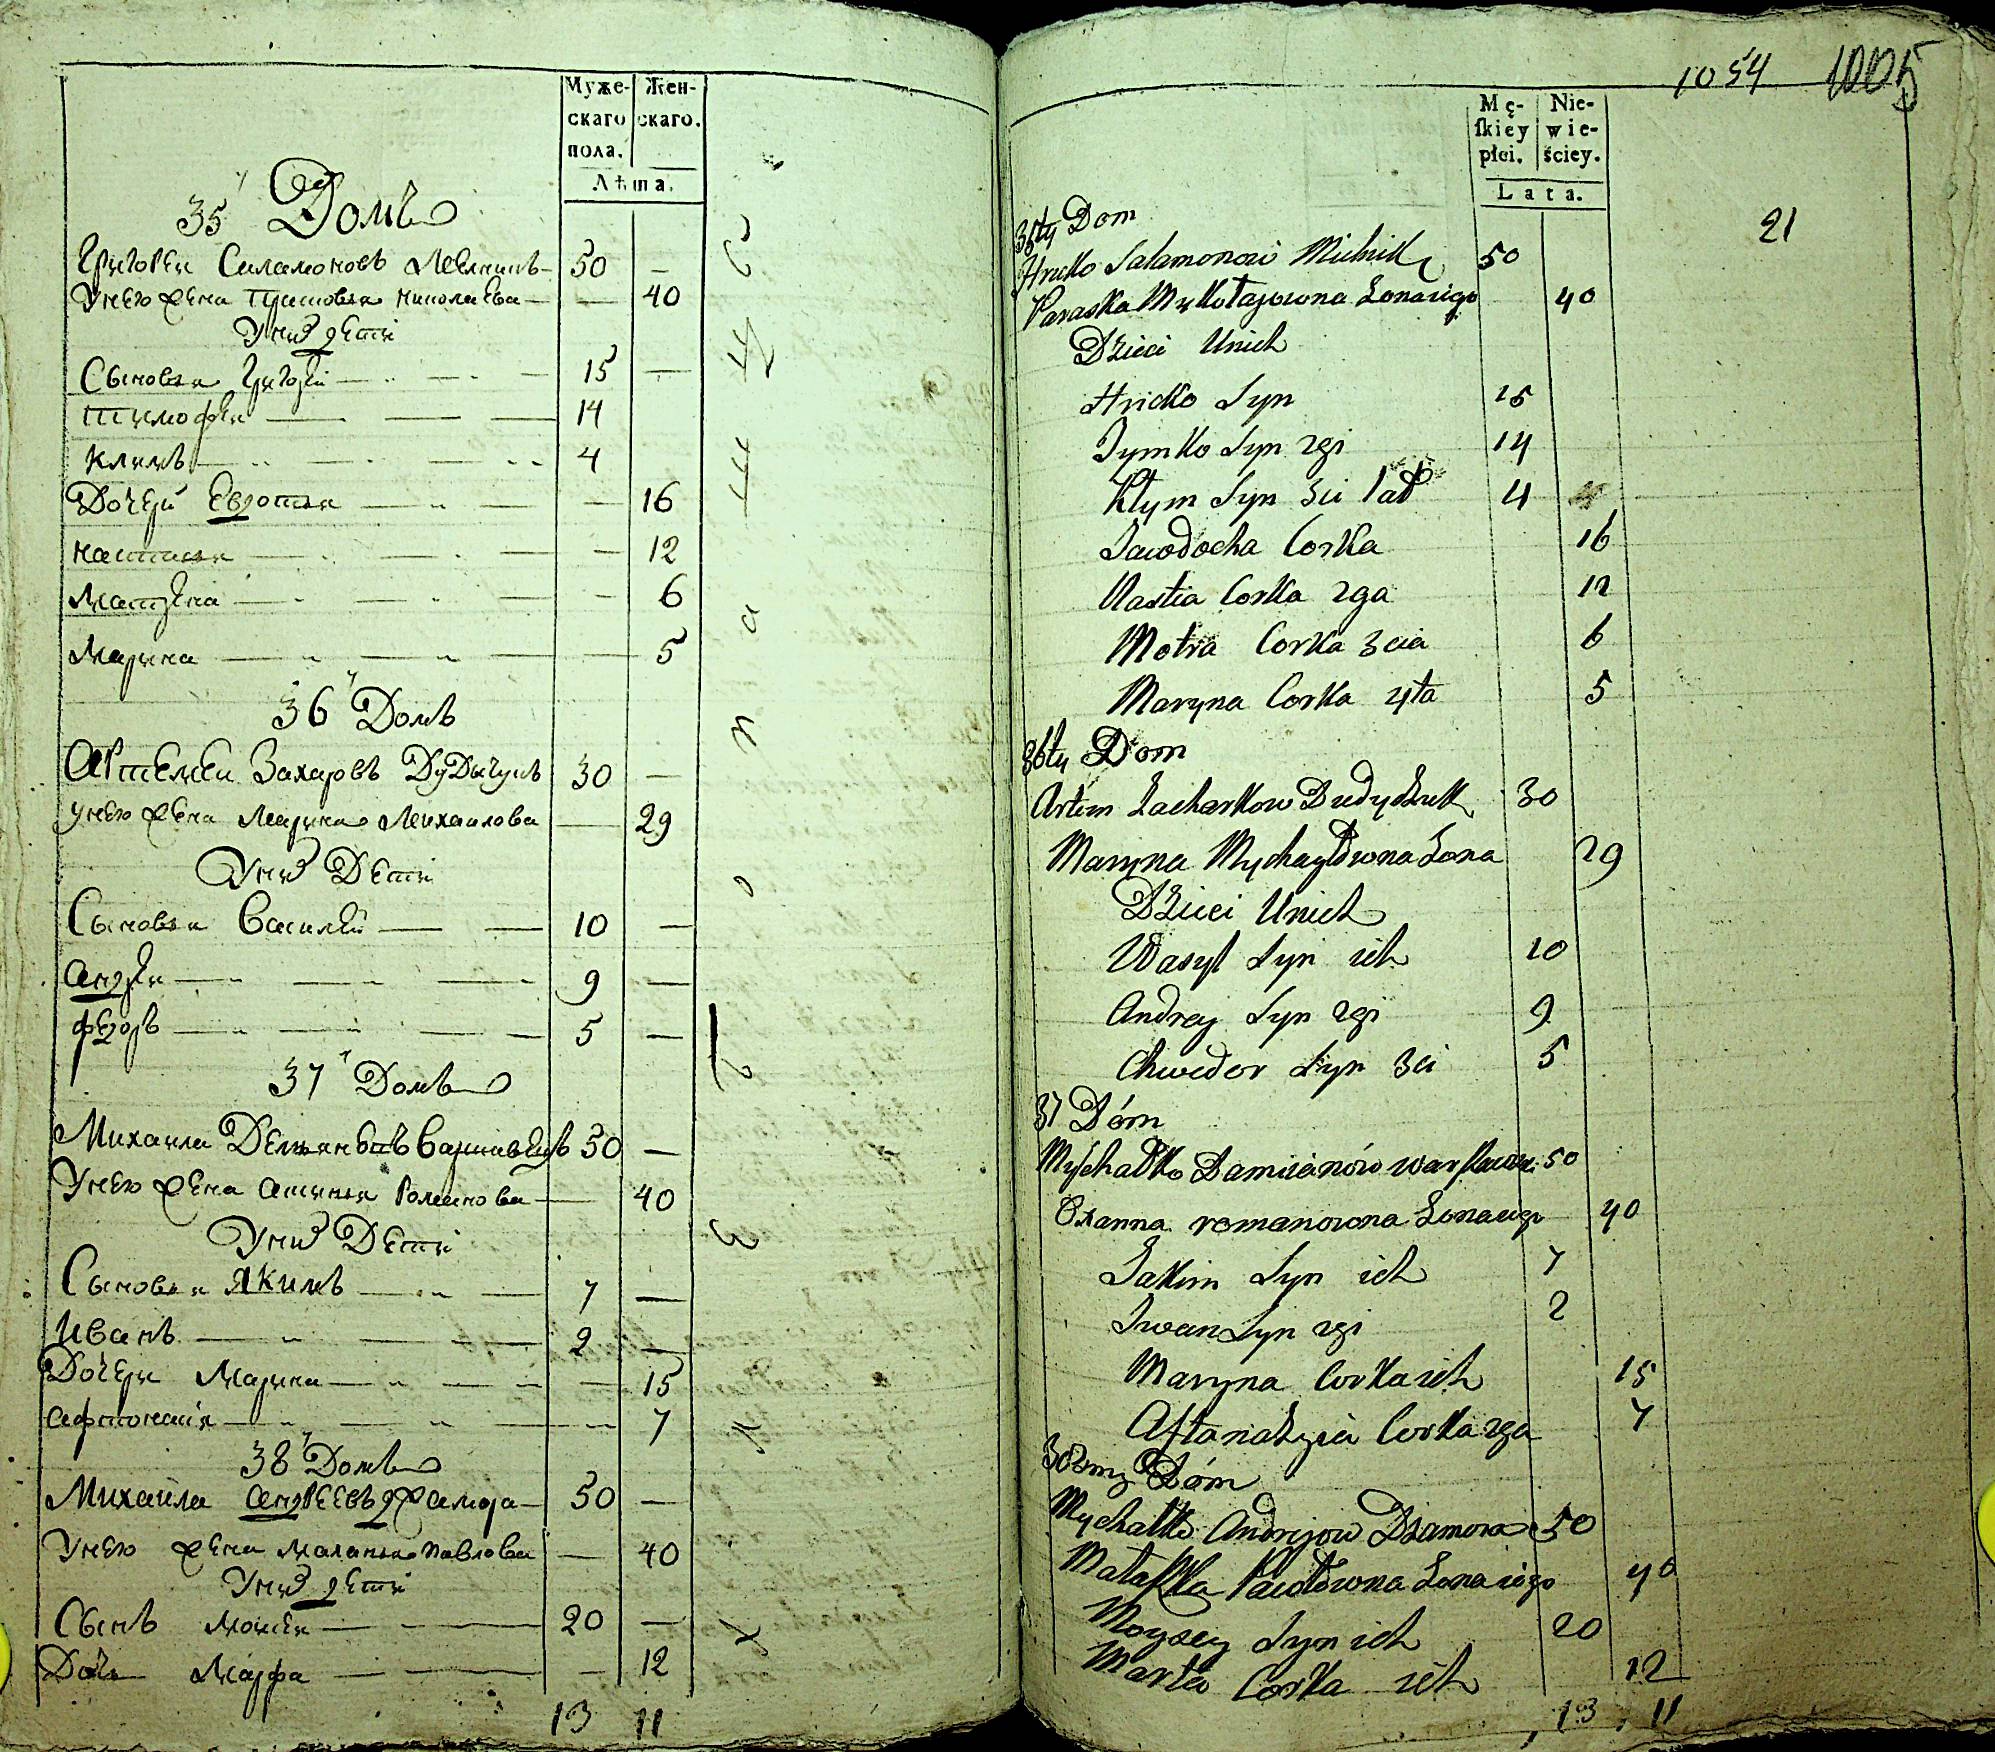 Муже-
скаго
пола.
Жен-
скаго.
Лѣта.
35й Домъ
Григореи Саламоновъ Мелникъ — 50 —
Унего жена Прасковья Николаева — — 40
Унихъ дети
Сыновья Григорей — 15 —
Тимофеи — 14
Климъ — 4
Дочери Евдотья — — 16
Настася — — 12
Матрена — — 6
Марина — 5
36й Домъ
Артемеи Захаровъ Дудычукъ 30 —
Унего жена Марина Михаилова — 29
Унихъ Дети
Сыновья Василей — 10 —
Андреи — 9 —
Федоръ — 5 —
37й Домъ
Михаила Демьяновъ 50 —
Унего жена Романова — — 40
Унихъ Дети
Сыновья Якимъ — 7 —
Иванъ — 2 —
Дочери Марина — — 15
Афтонасія — — 7
38й Домъ
Михаила Андреевъ Джамора — 50 —
Унего жена Маланья Павлова — 40
Унихъ дети
Сынъ Мойсеи — 20 —
Дочь Марфа — — 12
13 11
1054 1005
Mę-
skiey
płci.
Nie-
wie-
ściey.
Lata.
21
35ty Dom
Hrycko Salamonow Mielnik 50
Paraska Mykołajowna Żona iego 40
Dzieci Unich
Hricko Syn 15
Tymko Syn 2gi 14
Kłym Syn 3ci lat 4
Jawdocha Corka 16
Nastia Corka 2ga 12
Motra Corka 3cia 6
Maryna Corka 4ta 5
36ty Dom
Artem Zacharkow Dudyczuk 30
Maryna Mychayłowna Żona 29
Dzieci Unich
Wasyl Syn ich 10
Andrey Syn 2gi 9
Chwedor Syn 3ci 5
37 Dóm
Mychałko Damianów 50
Oxanna romanowna Żona iego 40
Jakim Syn ich 7
Iwan Syn 2gi 2
Maryna Corka ich 15
Aftanazyia Corka 2ga 7
38smy Dóm
Mychałko Andrijow Dzamora 50
Małaszka Pawłowna Żona iego 40
Moysey Syn ich 20
Marta Corka ich 12
13 11